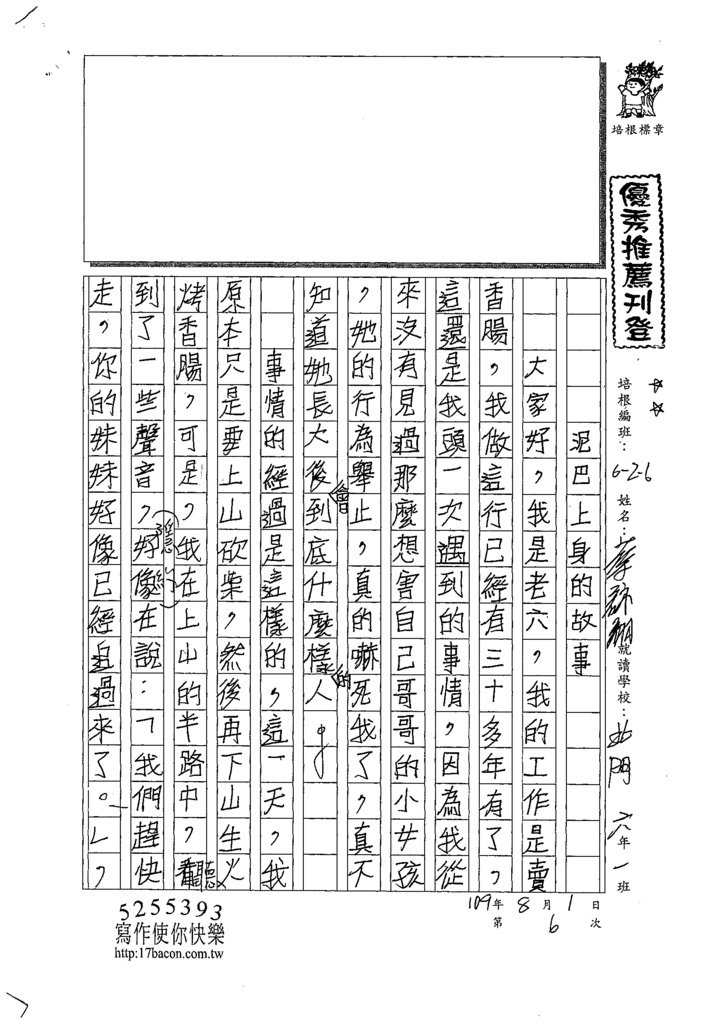 培根標章
優秀推薦刊登
培根編班：6-2-6 姓名： 就讀學校：北門 六年一班
109年8月1日
第6次
泥巴上身的故事
大家好，我是老六，我的工作是賣
香腸，我做這行已經有三十多年有了，
這還是我頭一次遇到的事情，因為我從
來沒有見過那麼想害自己哥哥的小女孩
，她的行為舉止，真的嚇死我了，真不
知道她長大後會到底什麼樣的人。
事情的經過是這樣的，這一天，我
原本只是要上山砍柴，然後再下山生火
烤香腸，可是，我在上山的半路中，聽
到了一些聲音，好像在說：「我們趕快
走，你的妹妹好像已經追過來了。」，
5255393
寫作使你快樂
http:17bacon.com.tw